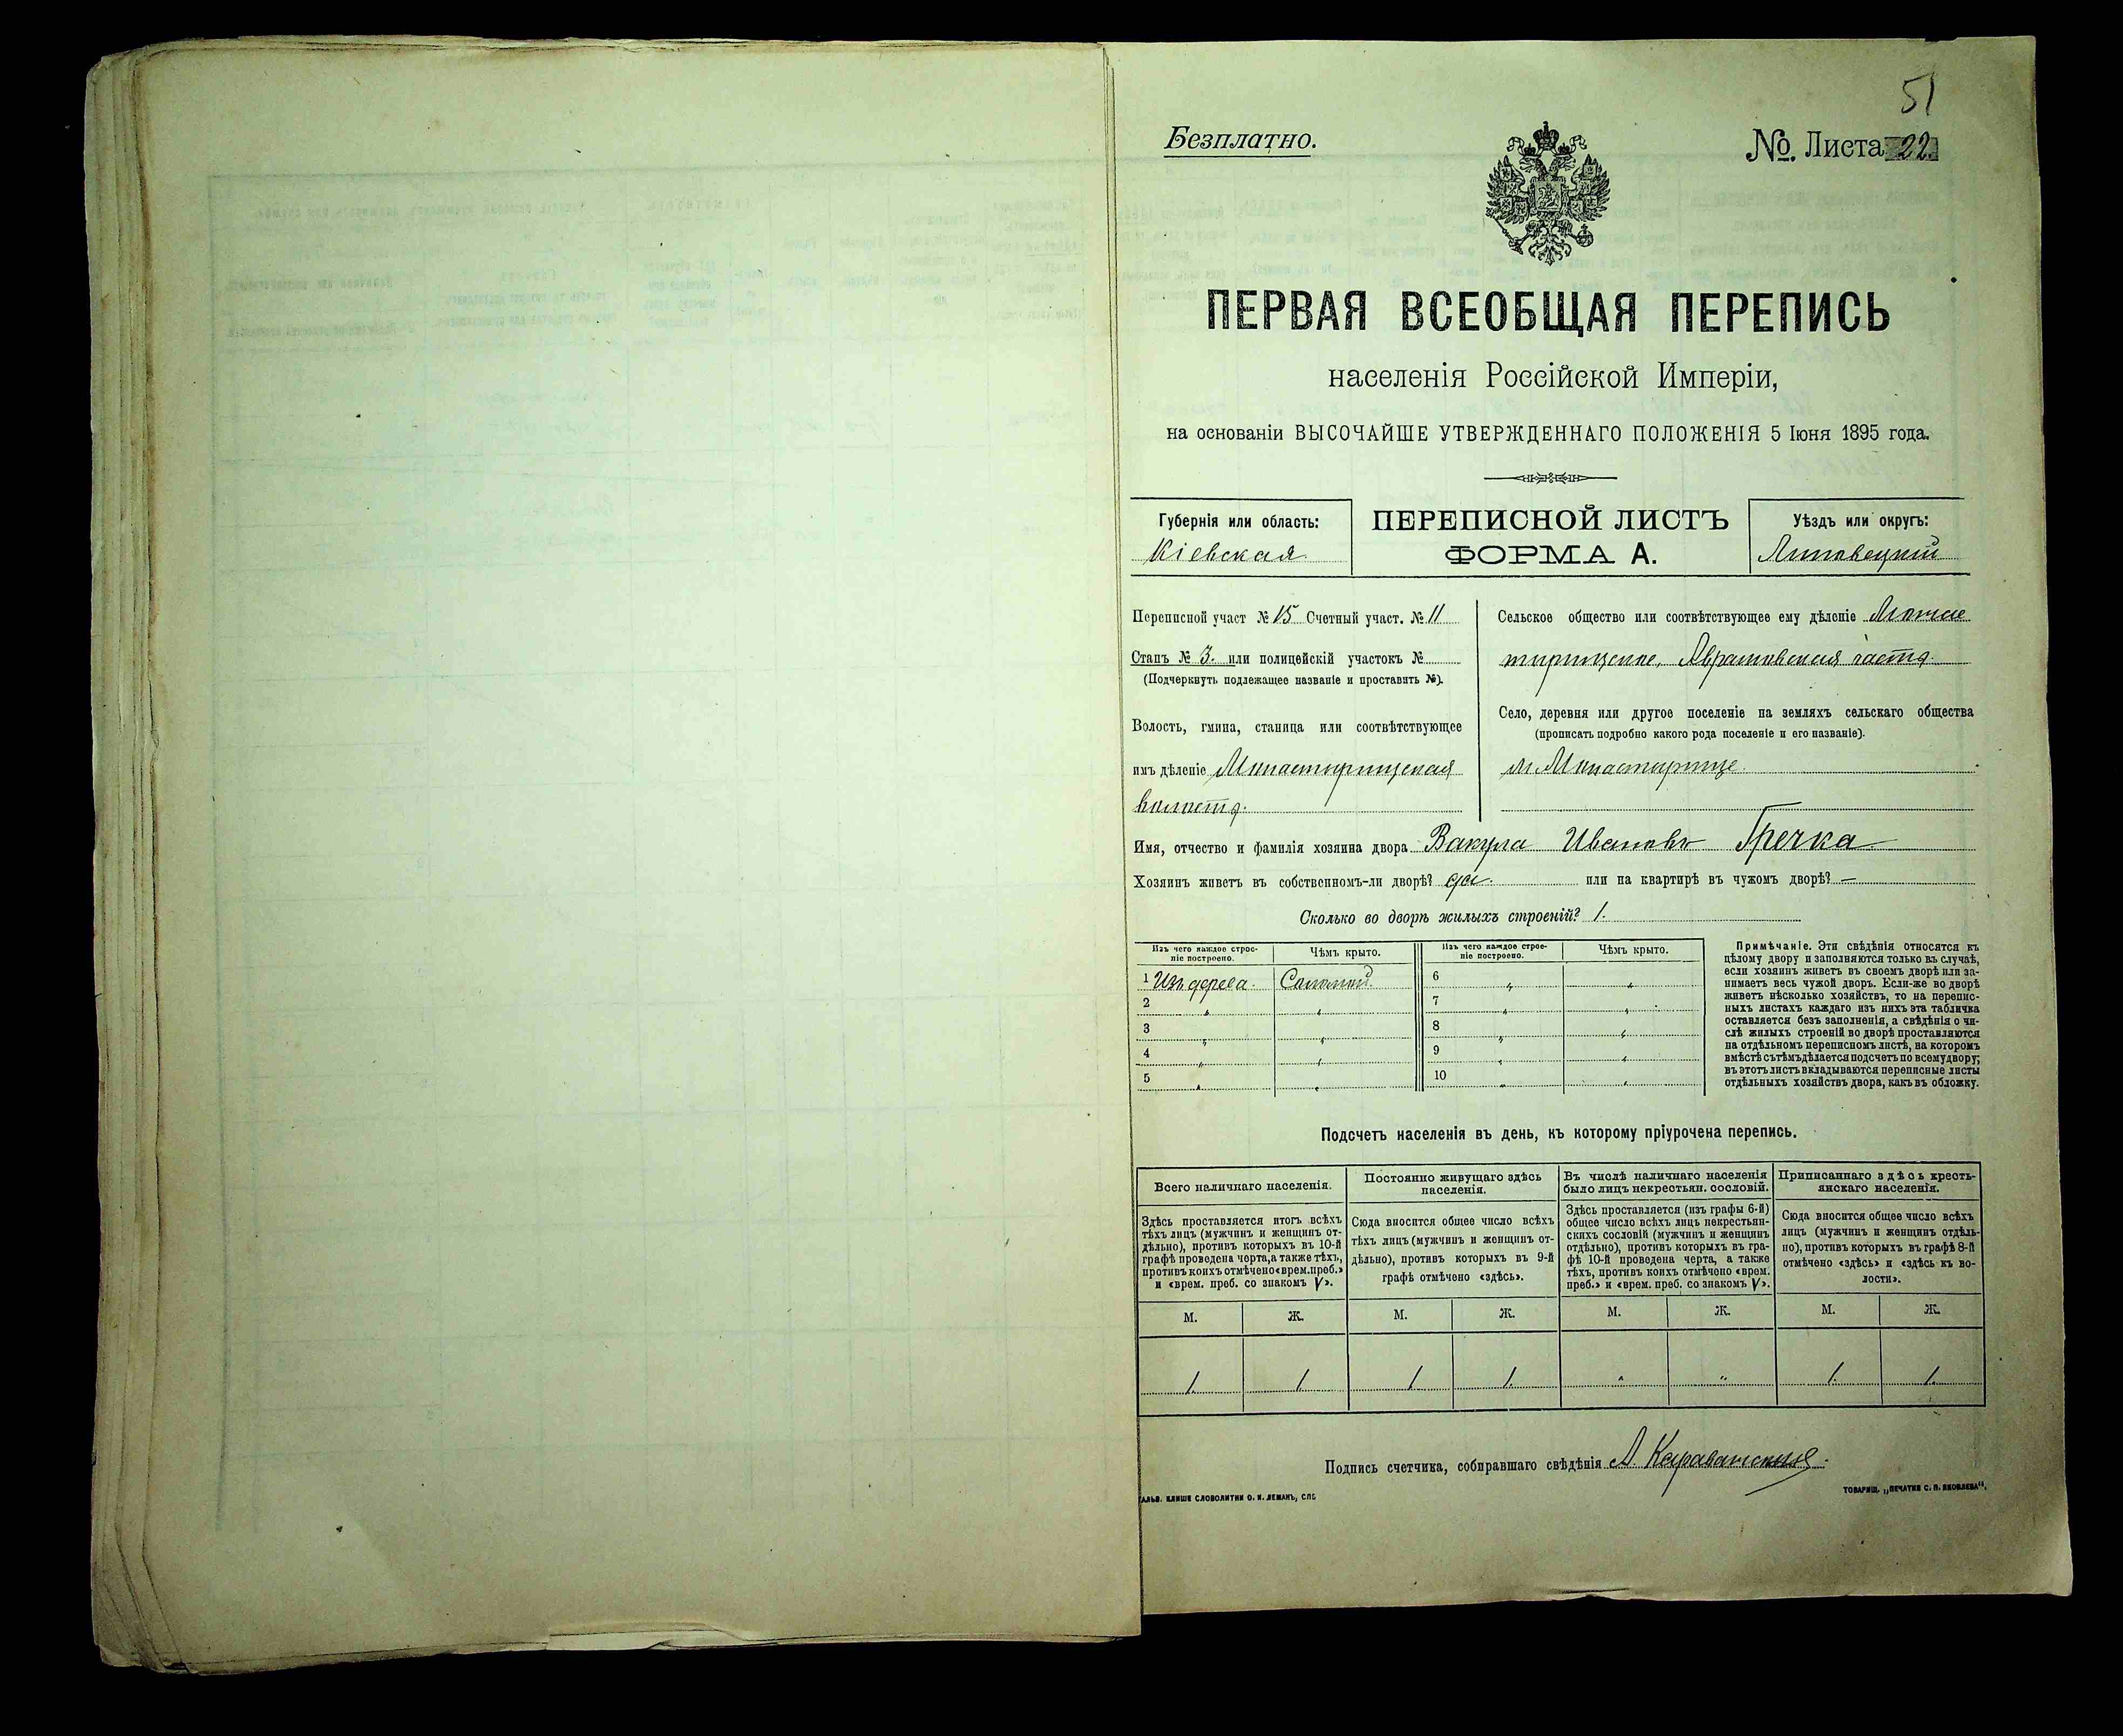 51
Безплатно.
№. Листа 22.
ПЕРВАЯ ВСЕОБЩАЯ ПЕРЕПИСЬ
населенія Россійской Имперіи,
на основаніи ВЫСОЧАЙШЕ УТВЕРЖДЕННАГО ПОЛОЖЕНІЯ 5 Іюня 1895 года.
Губернія или область:
Кіевская
ПЕРЕПИСНОЙ ЛИСТЪ
ФОРМА А.
Уѣздъ или округъ:
Липовецкій
Переписной участ № 15 Счетный участ. № 11
Станъ № 3. или полицейскій участокъ №
(Подчеркнуть подлежащее названіе и проставить №).
Волость, гмина, станица или соотвѣтствующее
имъ дѣленіе Монастырищская
волость.
Сельское общество или соотвѣтствующее ему дѣленіе Монас
тырищское, Аврамовская часть.
Село, деревня или другое поселеніе на земляхъ сельскаго общества
(прописать подробно какого рода поселеніе и его названіе).
м. Монастырище.
Имя, отчество и фамилія хозяина двора Вакула Ивановъ Гречка
Хозяинъ живетъ въ собственномъ-ли дворѣ? да. или на квартирѣ въ чужомъ дворѣ? —
Сколько во дворѣ жилыхъ строеній? 1.
Изъ чего каждое строе-
ніе построено.
Чѣмъ крыто.
Изъ чего каждое строе-
ніе построено.
Чѣмъ крыто.
1 Изъ дерева. Соломой. 6 „ „
2 „ „ 7 „ „
3 „ „ 8 „ „
4 „ „ 9 „ „
5 „ „ 10 „ „
Примѣчаніе. Эти свѣдѣнія относятся къ
цѣлому двору и заполняются только въ случаѣ,
если хозяинъ живетъ въ своемъ дворѣ или за-
нимаетъ весь чужой дворъ. Если-же во дворѣ
живетъ нѣсколько хозяйствъ, то на перепис-
ныхъ листахъ каждаго изъ нихъ эта табличка
оставляется безъ заполненія, а свѣдѣнія о чи-
слѣ жилыхъ строеній во дворѣ проставляются
на отдѣльномъ переписномъ листѣ, на которомъ
вмѣстѣ съ тѣмъ дѣлается подсчетъ по всему двору;
въ этотъ листъ вкладываются переписные листы
отдѣльныхъ хозяйствъ двора, какъ въ обложку.
Подсчетъ населенія въ день, къ которому пріурочена перепись.
Всего наличнаго населенія.
Здѣсь проставляется итогъ всѣхъ
тѣхъ лицъ (мужчинъ и женщинъ от-
дѣльно), противъ которыхъ въ 10-й
графѣ проведена черта, а также тѣхъ,
противъ коихъ отмѣчено «врем. преб.»
и «врем. преб. со знакомъ V».
Постоянно живущаго здѣсь
населенія.
Сюда вносится общее число всѣхъ
тѣхъ лицъ (мужчинъ и женщинъ от-
дѣльно), противъ которыхъ въ 9-й
графѣ отмѣчено «здѣсь».
Въ числѣ наличнаго населенія
было лицъ некрестьян. сословій.
Здѣсь проставляется (изъ графы 6-й)
общее число всѣхъ лицъ некрестьян-
скихъ сословій (мужчинъ и женщинъ
отдѣльно), противъ которыхъ въ гра-
фѣ 10-й проведена черта, а также
тѣхъ, противъ коихъ отмѣчено «врем.
преб.» и «врем. преб. со знакомъ V».
Приписаннаго здѣсь кресть-
янскаго населенія.
Сюда вносится общее число всѣхъ
лицъ (мужчинъ и женщинъ отдѣль-
но), противъ которыхъ въ графѣ 8-й
отмѣчено «здѣсь» и «здѣсь къ во-
лости».
М. Ж. М. Ж. М. Ж. М. Ж.
1. 1 1 1. „ „ 1. 1.
Подпись счетчика, собиравшаго свѣдѣнія А.
ГАЛЬВ. КЛИШЕ СЛОВОЛИТНИ О. И. ЛЕМАНЪ, СПБ.
ТОВАРИЩ. „ПЕЧАТНЯ С. П. ЯКОВЛЕВА“.